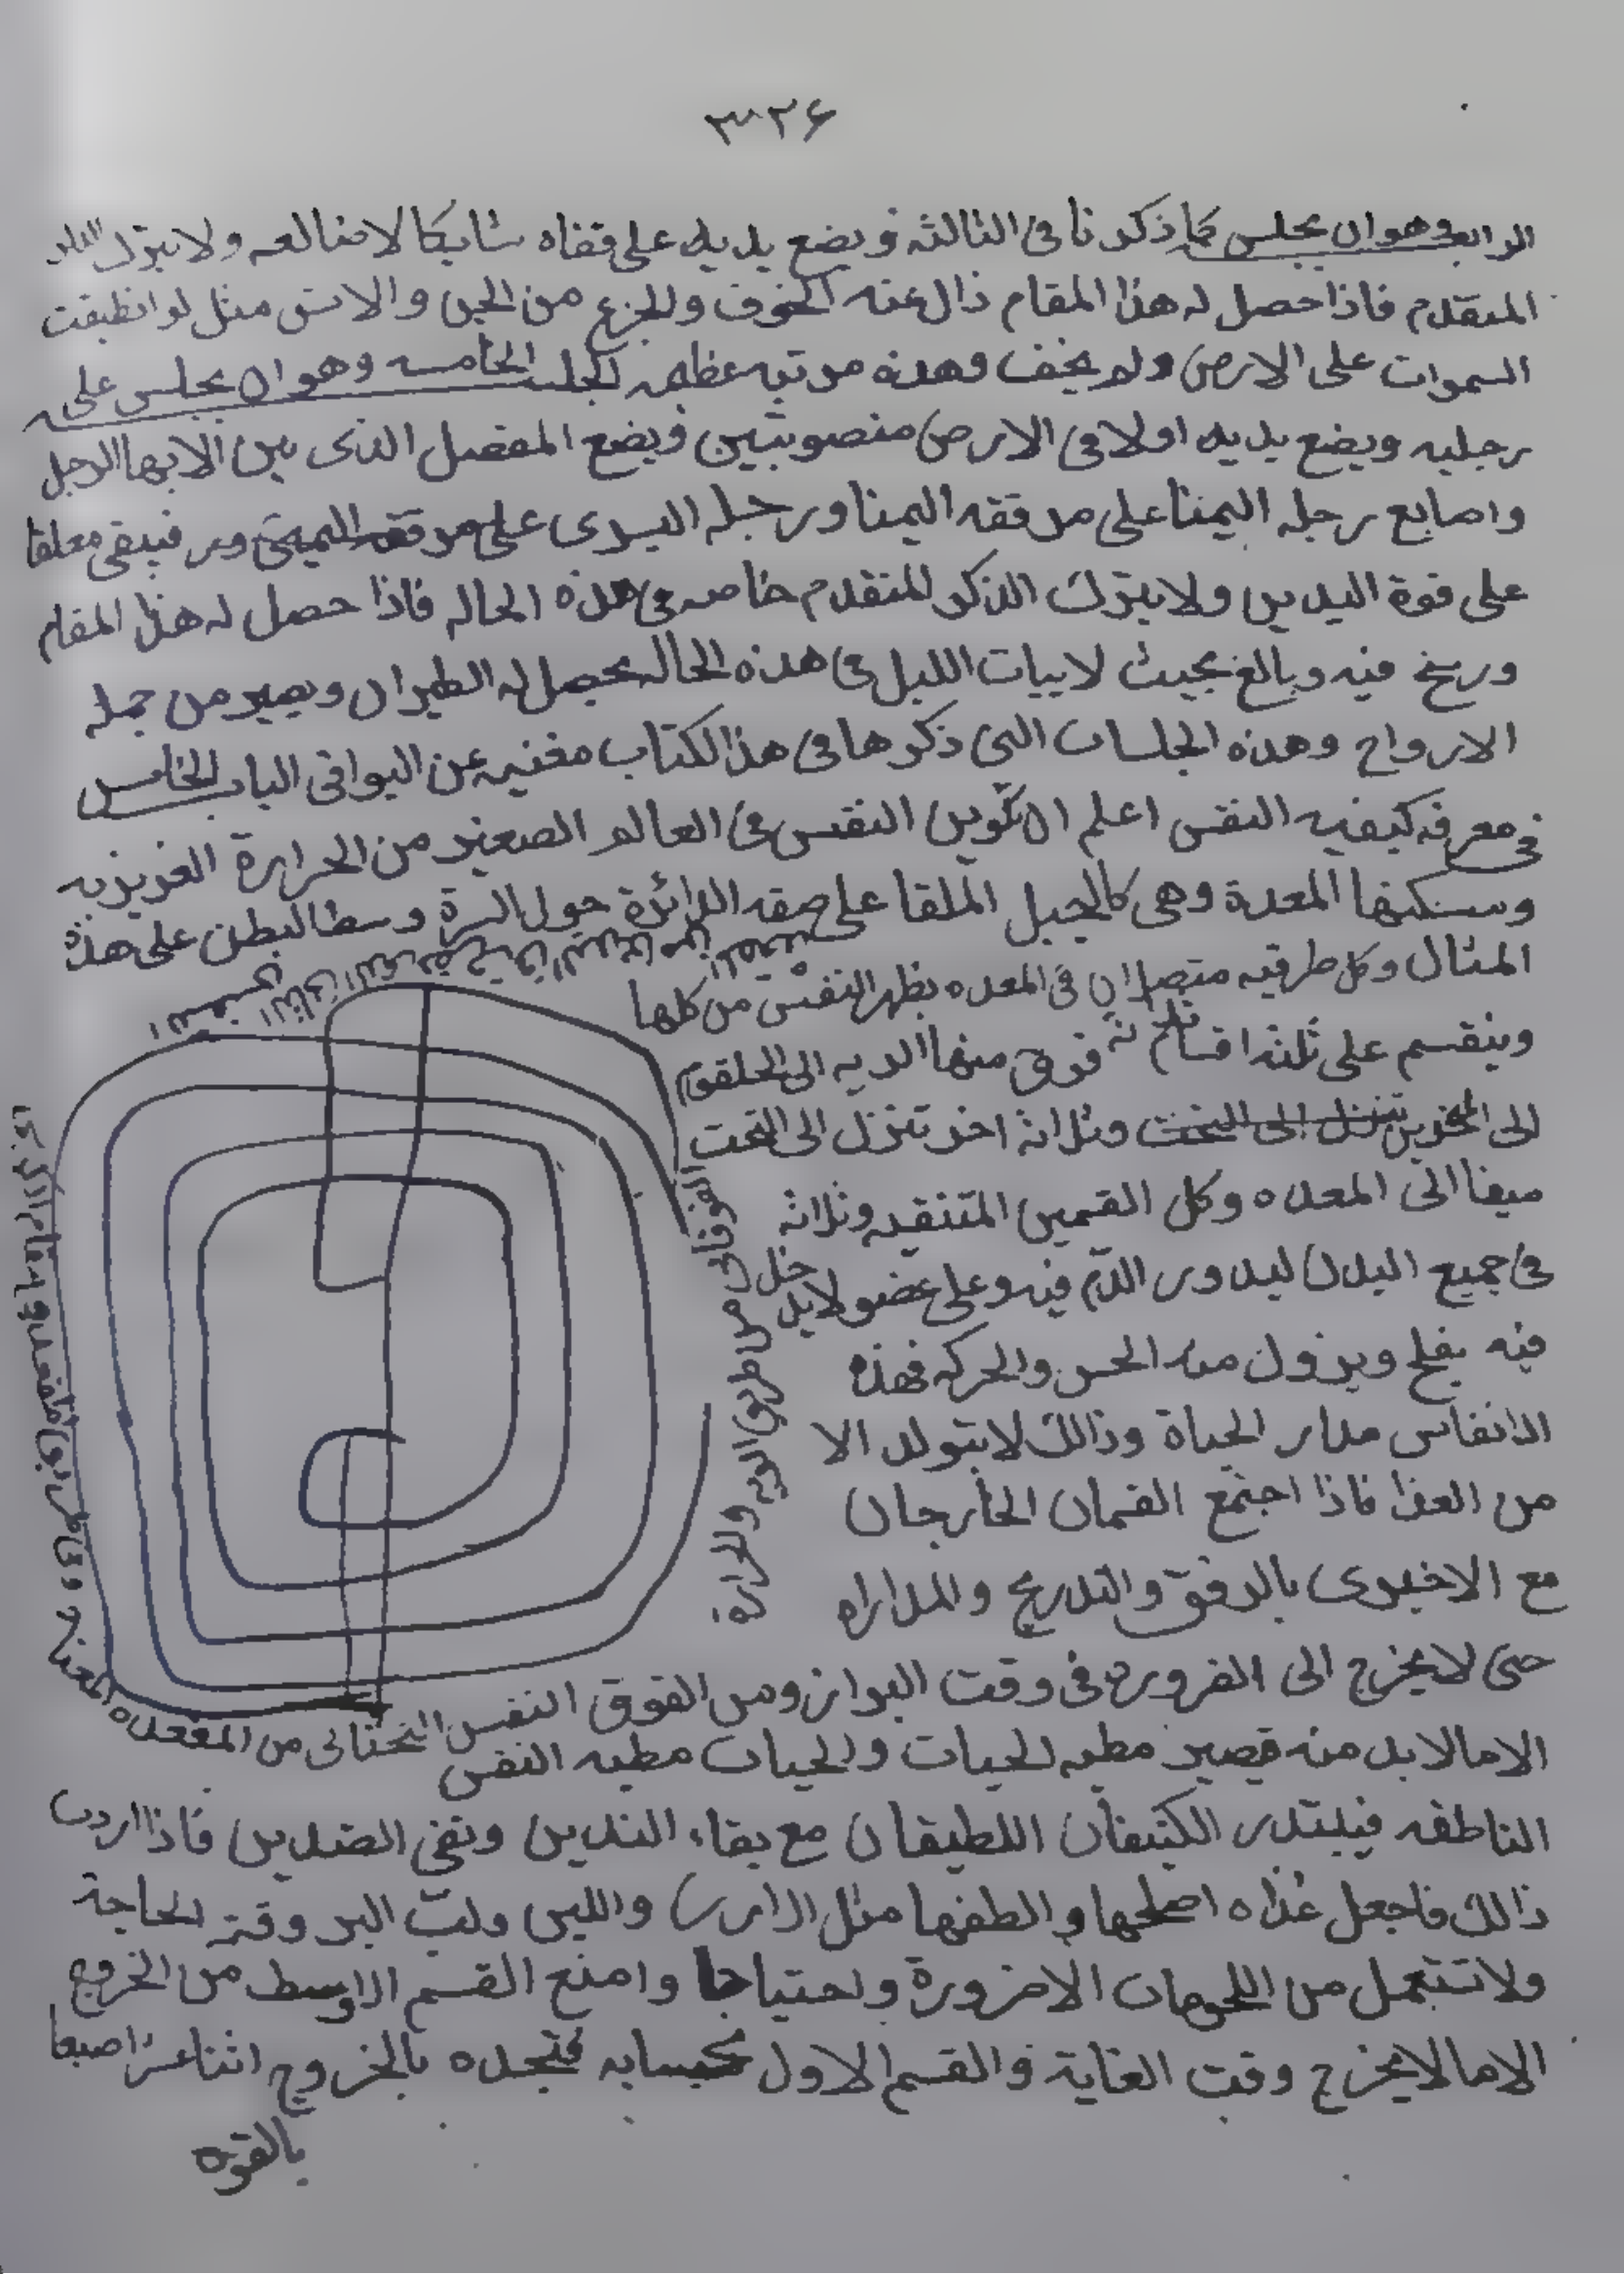 ٣٢۶
الرابعه وهو ان يجلس كما ذكرنا فى الثالثه ويضع يديه على قفاه شابكا لاصابعه ولا يترك
المتقدم فاذا حصل له هذا المقام ذال عنه الخوف والجزع من الجن والانس مثل لو انطبقت
السموات على الارض ولم يخف وهذه مرتبه عظيمه الجلسه الخامسه وهو ان يجلس على
رجليه ويضع يديه اولا فى الارض منصوبتين ويضع المفصل الذى بين الابها الرجل
واصابع رجله اليمنا على مرفقه اليمنا ورجله اليسرى على مرفقه فيبقى معلقا
على قوة اليدين ولا يترك الذكر المتقدم خاصه فى هذه الحاله فاذا حصل له هذا المقام
ورسخ فيه وبالغ بحيث لا يبات الليل فى هذه الحاله يحصل له الطيران ويصير من جمله
الارواح وهذه الجلسات التى ذكرها فى هذا الكتاب مغنيه عن البواقى الباب الخامس
فى معرفه كيفيه النفس اعلم ان تكوين النفس فى العالم الصغير من الحرارة الغريزيه
ومسكنها المعدة وهى كالحبل الملقا على صفه الدائرة حول السرة وسط البطن على هذه
المثال وكل طرفيه متصلان فى المعده يظهر النفس من كلها
وينقسم على ثلثه اقسام ثلاثه فوق منها الريه الى الحلقوم
الى المنخرين تنزل الى التحت وثلاثة اخر تنزل الى التحت
الى المعده وكل القسمين المتنفسه وثلاثه
فى جميع البدن ليدور الدم فيه وعلى عضو لا يدخل
فيه يفلج ويزول منه الحس والحركه فهذه
الانفاس مدار الحياة وذالك لا يتولد الا
من الغذا فاذا اجتمع القسمان الخارجان
مع الاخيرى بالرفق والتدريج والمداراه
حتى لا يخرج الى الضروره فى وقت البراز ومن الفوق
الاما لابد منه فيصير مطيه لحيات والحيات مطيه النفس
الناطقه الكثيفان اللطيفان مع بقاء الندين ونفى الضدين فاذا اردت
ذالك فاجعل غذاه اصلحها والطفها مثل الارر واللبن ولب البر وقت الحاجة
ولا تتعمل من اللحومات الا ضرورة واحتياجا وامنع القسم الاوسط من الخروج
الاما لا يخرج وقت الغاية والقسم الاول بحسابه فتجده بالخروج اثنا عشر اصبعا
بالقوه
الفوقانى من طريق الريه والحرارة
النفس التحتانى من المقعده